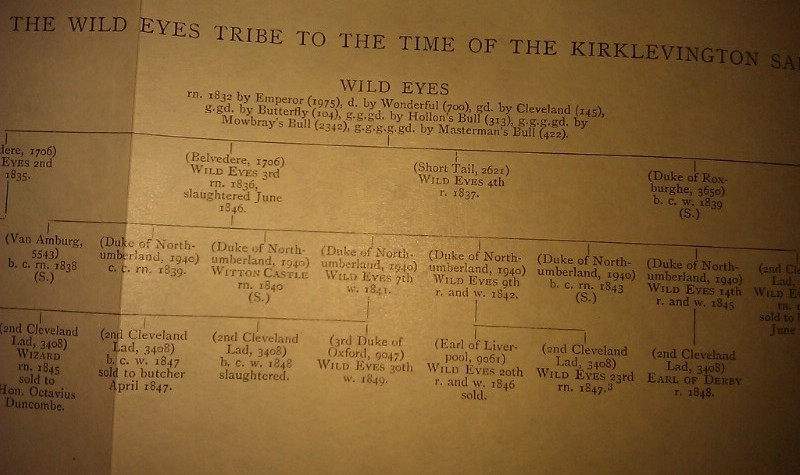 THE WILD EYES TRIBE TO THE TIME OF THE KIRKLEVINGTON
WILD EYES
rn. 1832 by Emperor (1975), d. by Wonderful (700), gd. by Cleveland (145),
g.gd. by Butterfly (104), g.g.gd. by Hollon's Bull (313), g.g.g.gd. by
Mowbray's Bull (2342), g.g.g.g.gd. by Masterman's Bull (422).
1706)
EYES 2nd
1835.
(Belvedere, 1706)
WILD EYES 3rd
rn. 1836,
slaughtered June
1846.
(Short Tail, 2621)
WILD EYES 4th
r. 1837.
(Duke of Rox-
burghe, 3650)
b. c. w. 1839
(S.)
(Van Amburg,
5543)
b. c. rn. 1838
(S.)
(Duke of North-
umberland, 1940)
c. c. rn. 1839.
(Duke of North-
umberland, 1940)
WITTON CASTLE
rn. 1840
(S.)
(Duke of North-
umberland, 1940)
WILD EYES 7th
w. 1841.
(Duke of North-
umberland, 1940)
WILD EYES 9th
r. and w. 1842.
(Duke of North-
umberland, 1940)
b. c. rn. 1843
(S.)
(Duke of North-
umberland, 1940)
WILD EYES 14th
r. and w. 1845
(2nd
Lad,
WILD
rn.
sold to
June
(2nd Cleveland
Lad, 3408)
WIZARD
rn. 1845
sold to
Hon. Octavius
Duncombe.
(2nd Cleveland
Lad, 3408)
b. c. w. 1847
sold to butcher
April 1847.
(2nd Cleveland
Lad, 3408)
b. c. w. 1848
slaughtered.
(3rd Duke of
Oxford, 9047)
WILD EYES 30th
w. 1849.
(Earl of Liver-
pool, 9061)
WILD EYES 20th
r. and w. 1846
sold.
(2nd Cleveland
Lad, 3408)
WILD EYES 23rd
rn. 1847.³
(2nd Cleveland
Lad, 3408)
EARL OF DERBY
r. 1848.